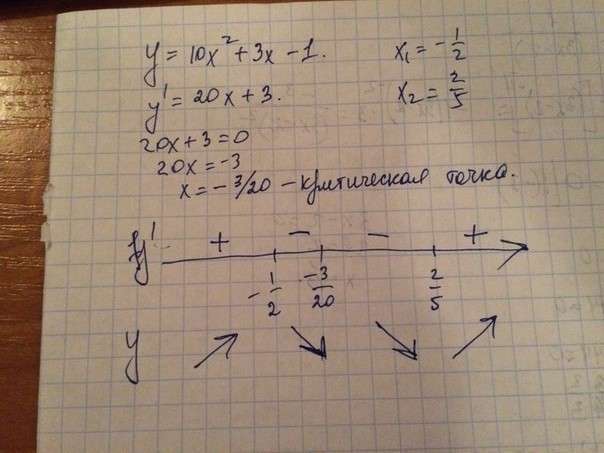 y = 10x² + 3x - 1.
x₁ = -1/2
y' = 20x + 3.
x₂ = 2/5
20x + 3 = 0
20x = -3
x = -3/20 - критическая точка.
y' + - - +
-1/2 -3/20 2/5
y ↗ ↘ ↘ ↗